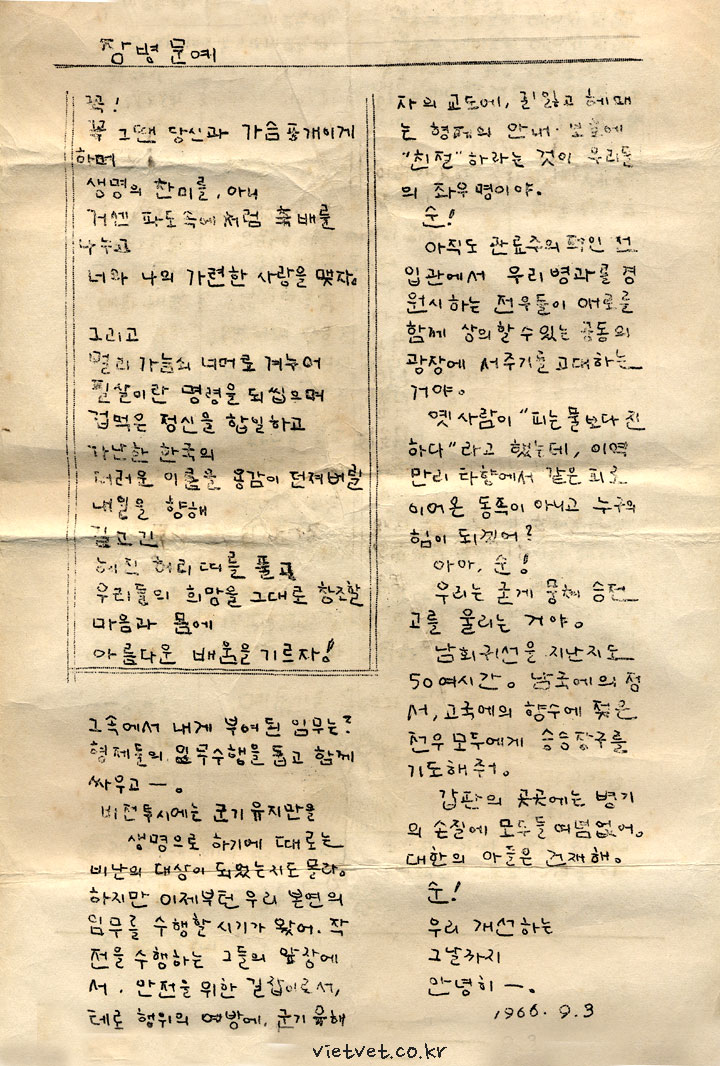 장병문예
꼭!
꼭 그땐 당신과 가슴풍개이게
하며
생명의 찬미를, 아니
거센 파도속에서처럼 축배를
나누고
너와 나의 가련한 사랑을 맺자.
그리고
멀리 가늠쇠 너머로 겨누어
필살이란 명령을 되씹으며
겁먹은 정신을 합일하고
가난한 한국의
더러운 이름을 용감이 던져버릴
내일을 향해
길고 긴
해진 허리띠를 풀고
우리들의 희망을 그대로 창조할
마음과 몸에
아름다운 배움을 기르자!
그속에서 내게 부여된 임무는?
형제들의 임무수행을 돕고 함께
싸우고 ―.
비전투시에는 군기유지만을
생명으로 하기에 때로는
비난의 대상이 되었는지도 몰라.
하지만 이제부턴 우리 본연의
임무를 수행할 시기가 왔어. 작
전을 수행하는 그들의 앞장에
서. 안전을 위한 길잡이로서,
테로 행위의 예방에, 군기 유해
자의 교도에, 길잃고 헤매
는 형제의 안내·보호에
"친절"하라는 것이 우리들
의 좌우명이야.
순!
아직도 관료주의적인 선
입관에서 우리병과를 경
원시하는 전우들이 애로를
함께 상의할수있는 공동의
광장에 서주기를 고대하는
거야.
옛사람이 "피는물보다 진
하다"라고 했는데, 이역
만리 타향에서 같은 피로
이어온 동족이 아니고 누구의
힘이 되겠어?
아아, 순!
우리는 굳게 뭉쳐 승전
고를 울리는 거야.
남회귀선을 지난지도
50여시간. 남국에의 정
서, 고국에의 향수에 젖은
전우 모두에게 승승장구를
기도해주어.
갑판의 곳곳에는 병기
의 손질에 모두들 여념없어.
대한의 아들은 건재해.
순!
우리 개선하는
그날까지
안녕히 ―.
1966. 9. 3
vietvet.co.kr